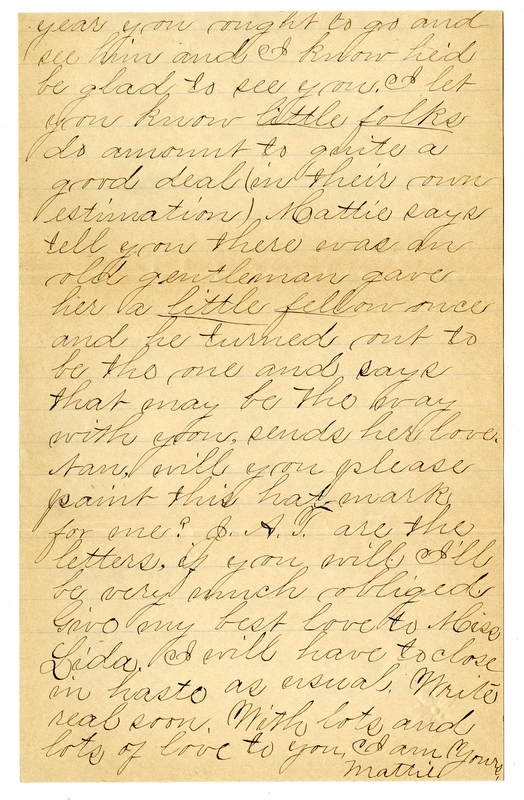 year you ought to go and
see him and I know he'd
be glad to see you. I let
you know little folks
do amount to quite a
good deal (in their own
estimation) Mattie says
tell you there was an
old gentleman gave
her a little fellow once
and he turned out to
be the one and says
that may be the way
with you, sends her love.
Nan, will you please
paint this hat mark
for me? J. A. T. are the
letters, if you will I'll
be very much obliged
Give my best love to Miss
Lida. I will have to close
in haste as usual. Write
real soon. With lots and
lots of love to you, I am Yours,
Mattie